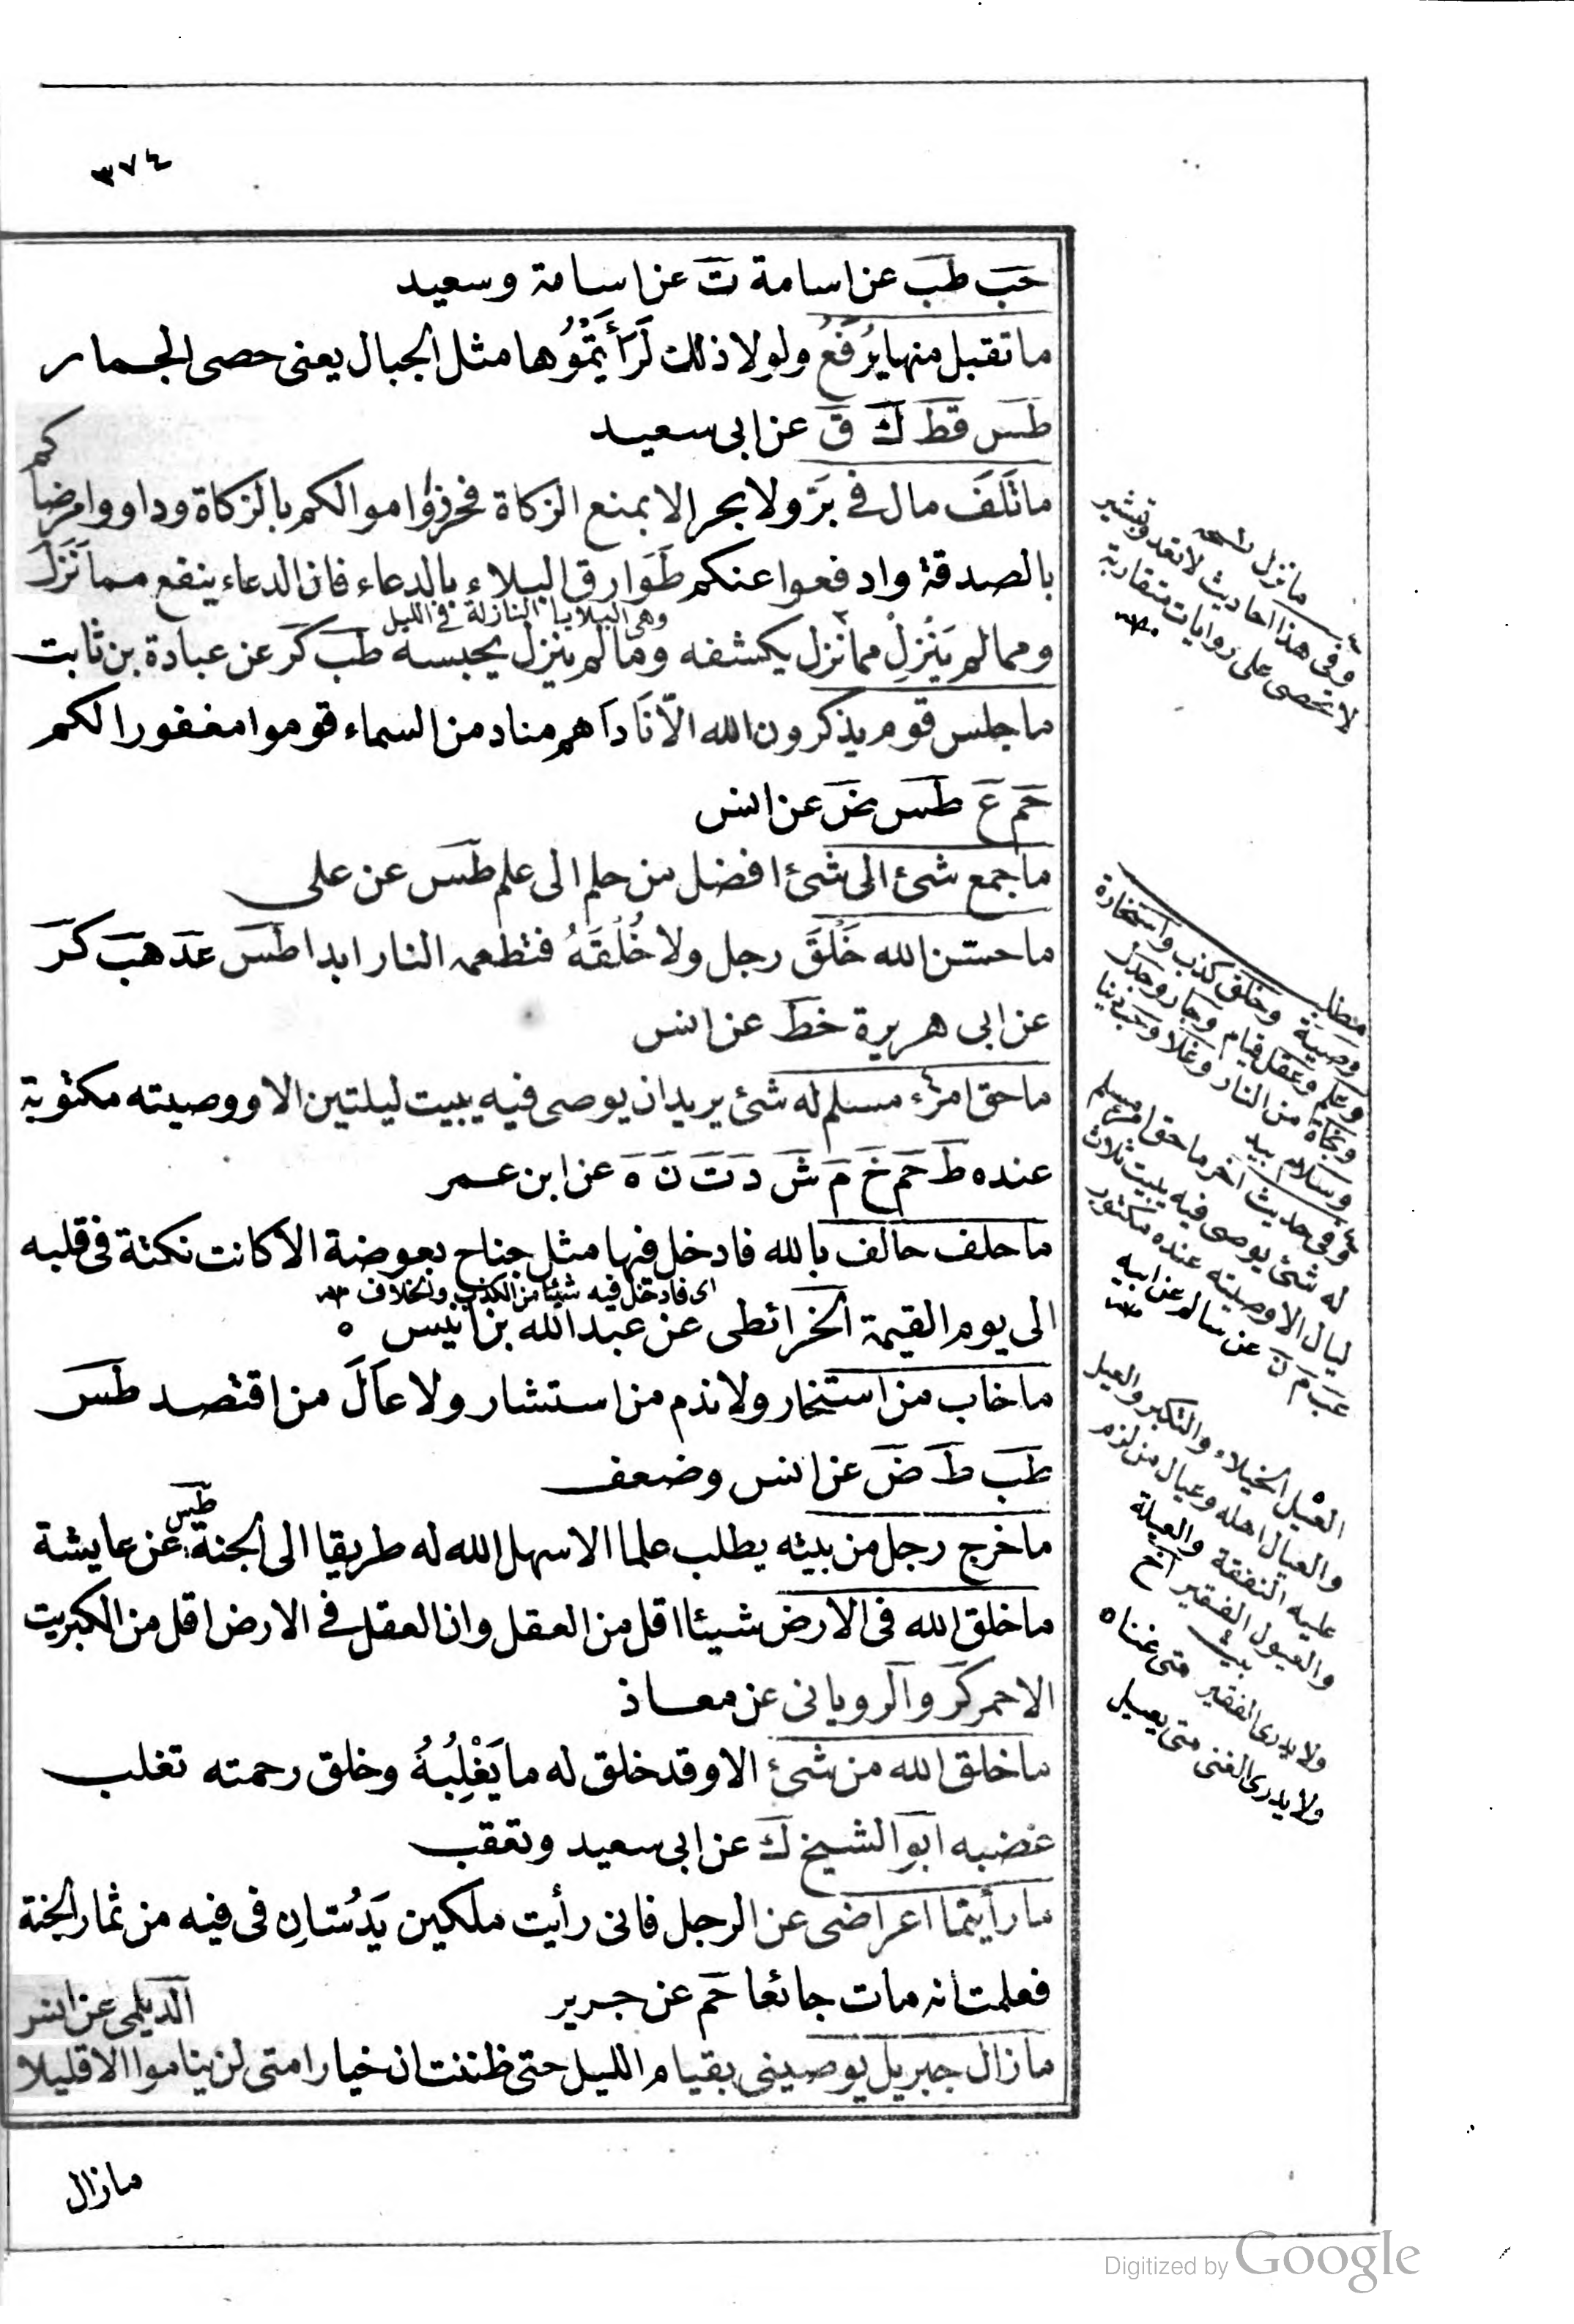 ٣٧٤
حب طب عن اسامة ت عن اسامة وسعيد
ما تقبل منها يُرْفَعُ ولولا ذلك لَرَأَيْتُمُوُها مثل الجبال يعنى حصى الجمار
طس قط ك ق عن ابى سعيد
ما تَلَفَ مال فى بَرّ ولا بحر الا بمنع الزكاة فحرزوا اموالكم بالزكاة وداووا مرضاكم
بالصدقة وادفعوا عنكم طَوَارق البلاء بالدعاء فان الدعاء ينفع مما نَزَلَ
وهى البلايا النازلة فى الليل
ومما لم يَنْزِلْ مما نزل يكشفه وما لم ينزل يحبسه طب كر عن عبادة بن ثابت
ما جلس قوم يذكرون الله الّا نَادَاهم مناد من السماء قوموا مغفورا لكم
حم ع طس ض عن انس
ما جمع شئ الى شئ افضل من حلم الى علم طس عن على
ما حسّن الله خَلْقَ رجل ولا خُلُقَهُ فتطعمه النار ابدا طس عد هب كر
عن ابى هريرة خط عن انس
ما حق امرْء مسلم له شئ يريد ان يوصى فيه يبيت ليلتين الا ووصيته مكتوبة
عنده ط حم خ م ش د ت ن ه عن ابن عمر
ما حلف حالف بالله فادخل فيها مثل جناح بعوضة الا كانت نكتة فى قلبه
اى فادخل فيه شيئا من الكذب والخلاف
الى يوم القيمة الخرائطى عن عبد الله بن انيس ه
ما خاب من استخار ولا ندم من استشار ولا عَالَ من اقتصد طس
طب ط ض عن انس وضعف
ما خرج رجل من بيته يطلب علما الا سهل الله له طريقا الى الجنة طس عن عايشة
ما خلق الله فى الارض شيئا اقل من العقل وان العقل فى الارض اقل من الكبريت
الاحمر كر والرويانى عن معاذ
ما خلق الله من شئ الا وقد خلق له ما يَغْلِبُهُ وخلق رحمته تغلب
غضبه ابو الشيخ ك عن ابى سعيد وتعقب
ما رأيتما اعراضى عن الرجل فانى رأيت ملكين يَدُسّانِ فى فيه من ثمار الجنة
فعلمت انه مات جائعا حم عن جرير
الديلمى عن انس
ما زال جبريل يوصينى بقيام الليل حتى ظننت ان خيار امتى لن يناموا الا قليلا
ما زال
ما نزل نسخه
وفى هذا احاديث لا تعد وتبشير
لا تحصى على روايات متقاربة
مطلب
وصية وخلق كذب واستخارة
وعلم وعقل قيام وجار وجدل
ونجاة من النار وغلا وحب دنيا
وسلام بيد
وفى حديث اخر ما حق امرء مسلم
له شئ يوصى فيه يبيت ثلاث
ليال الا وصيته عنده مكتوب
عب م ن عن سالم عن ابيه
العيل الخيلاء والتكبر والعيل
والعيال اهله وعيال من لزم
عليه النفقة والعيلة
والعيول الفقير الخ
بيت
ولا يدرى الفقير متى غناه
ولا يدرى الغنى متى يعيل
Digitized by Google